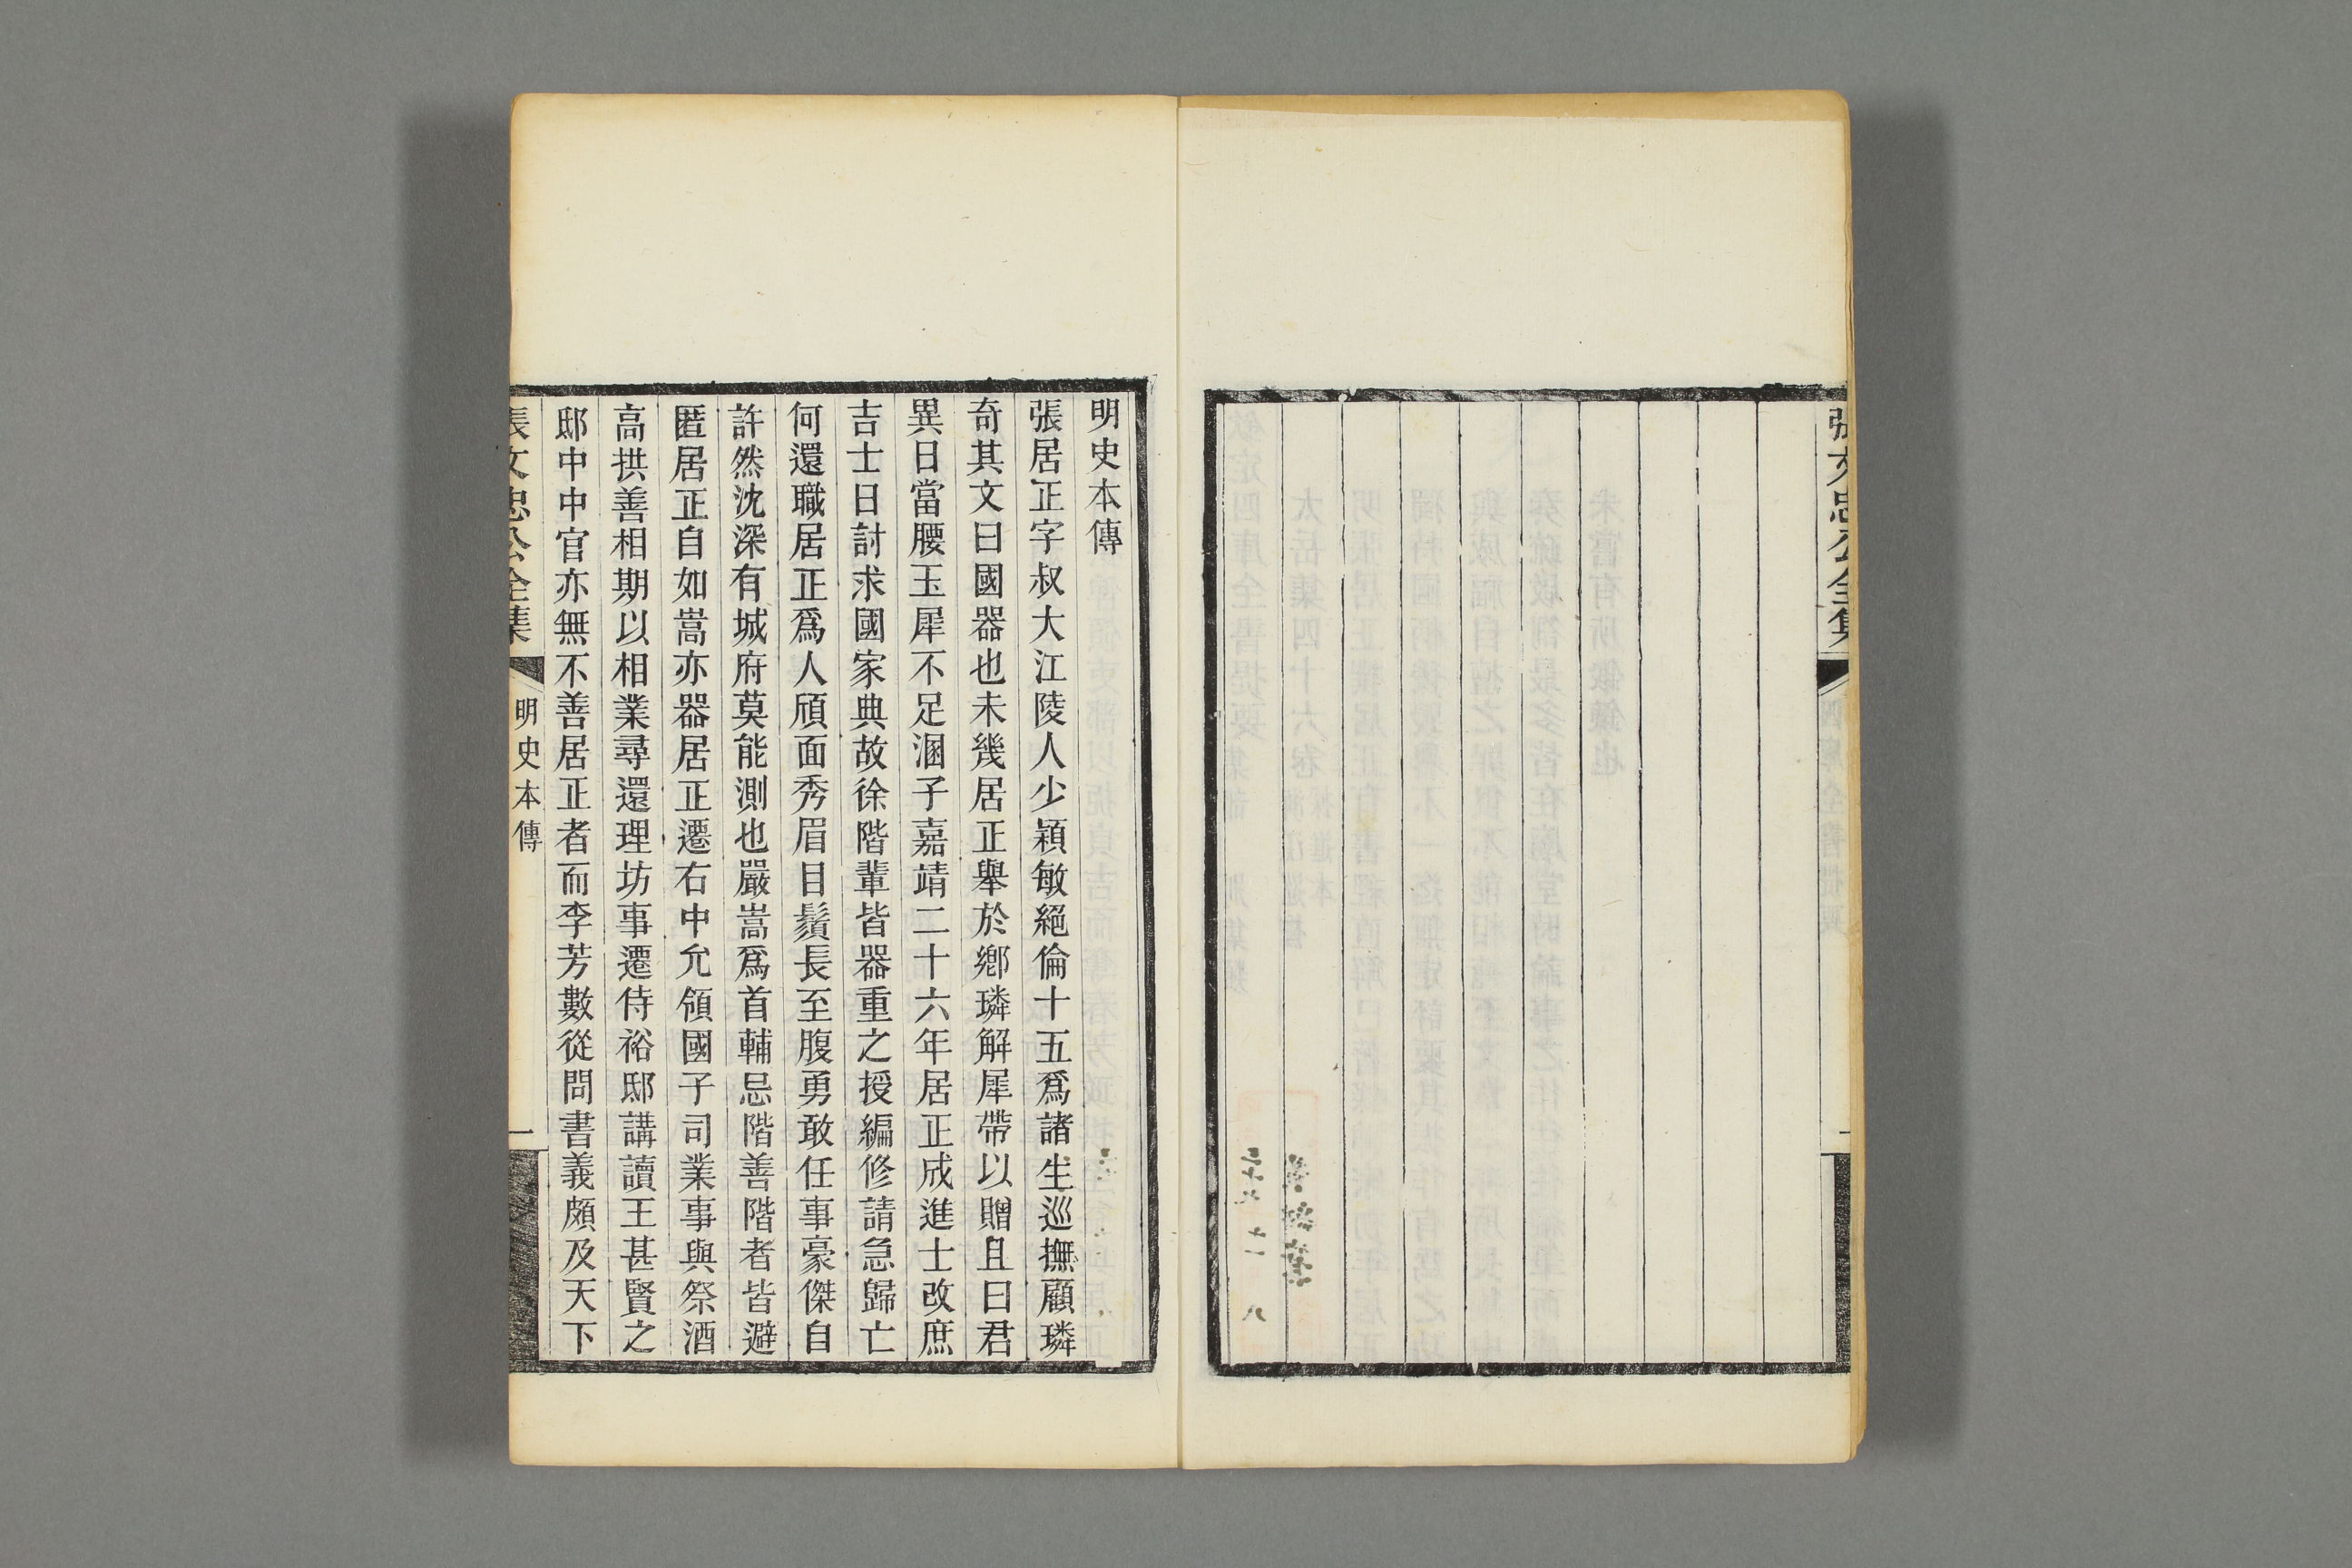 張文忠公全集
一
明史本傳
張居正字叔大江陵人少穎敏絕倫十五爲諸生巡撫顧璘
奇其文曰國器也未幾居正舉於鄉璘解犀帶以贈且曰君
異日當腰玉犀不足溷子嘉靖二十六年居正成進士改庶
吉士日討求國家典故徐階輩皆器重之授編修請急歸亡
何還職居正爲人頎面秀眉目鬚長至腹勇敢任事豪傑自
許然沈深有城府莫能測也嚴嵩爲首輔忌階善階者皆避
匿居正自如嵩亦器居正遷右中允領國子司業事與祭酒
高拱善相期以相業尋還理坊事遷侍裕邸講讀王甚賢之
邸中中官亦無不善居正者而李芳數從問書義頗及天下
張文忠公全集
明史本傳
一